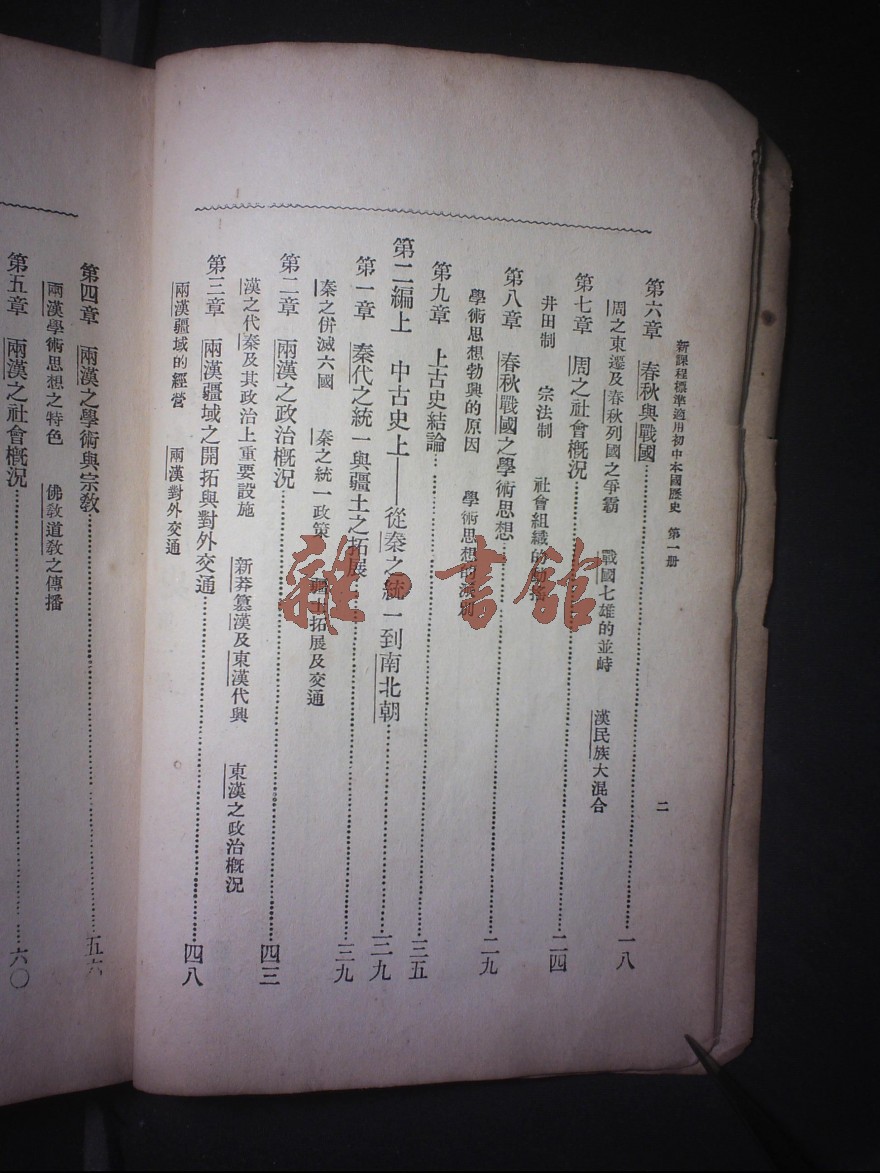 新課程標準適用初中本國歷史　第一册
二
第六章　春秋與戰國…………一八
周之東遷及春秋列國之爭霸　戰國七雄的並峙　漢民族大混合
第七章　周之社會概況…………二四
井田制　宗法制　社會組織的動搖
第八章　春秋戰國之學術思想…………二九
學術思想勃興的原因　學術思想的派別
第九章　上古史結論…………三五
第二編上　中古史上——從秦之統一到南北朝…………三九
第一章　秦代之統一與疆土之拓展…………三九
秦之併滅六國　秦之統一政策　疆土拓展及交通
第二章　兩漢之政治概況…………四三
漢之代秦及其政治上重要設施　新莽篡漢及東漢代興　東漢之政治概況
第三章　兩漢疆域之開拓與對外交通…………四八
兩漢疆域的經營　兩漢對外交通
第四章　兩漢之學術與宗教…………五六
兩漢學術思想之特色　佛教道教之傳播
第五章　兩漢之社會概況…………六〇
雜·書館